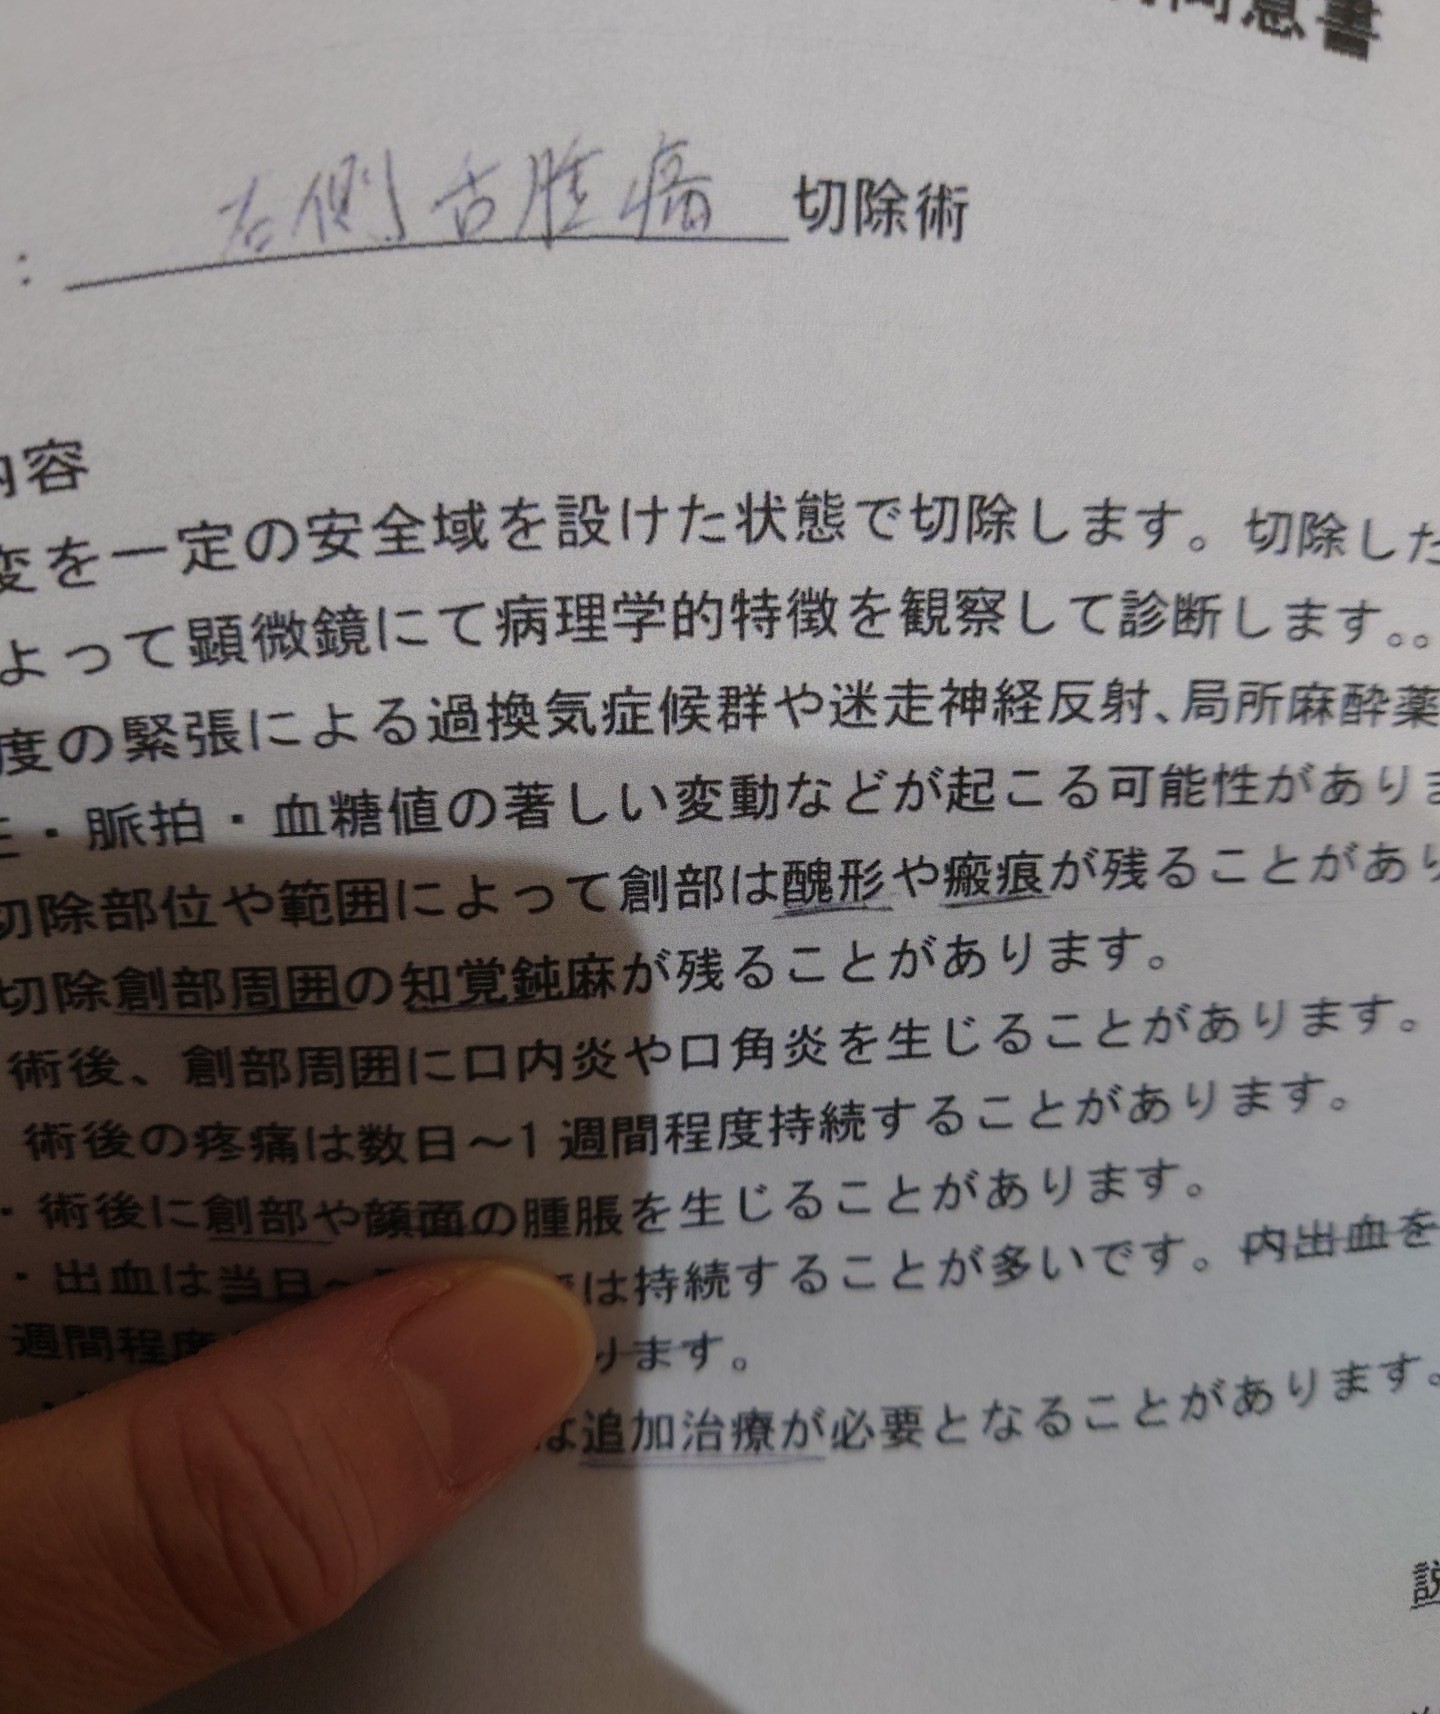 同意書
: 右側舌腫瘍 切除術
内容
変を一定の安全域を設けた状態で切除します。切除した
よって顕微鏡にて病理学的特徴を観察して診断します。。
度の緊張による過換気症候群や迷走神経反射、局所麻酔薬
・脈拍・血糖値の著しい変動などが起こる可能性がありま
切除部位や範囲によって創部は醜形や瘢痕が残ることがあり
切除創部周囲の知覚鈍麻が残ることがあります。
術後、創部周囲に口内炎や口角炎を生じることがあります。
術後の疼痛は数日～1週間程度持続することがあります。
・術後に創部や顔面の腫脹を生じることがあります。
・出血は当日～ は持続することが多いです。内出血を
週間程度 ります。
は追加治療が必要となることがあります。
説